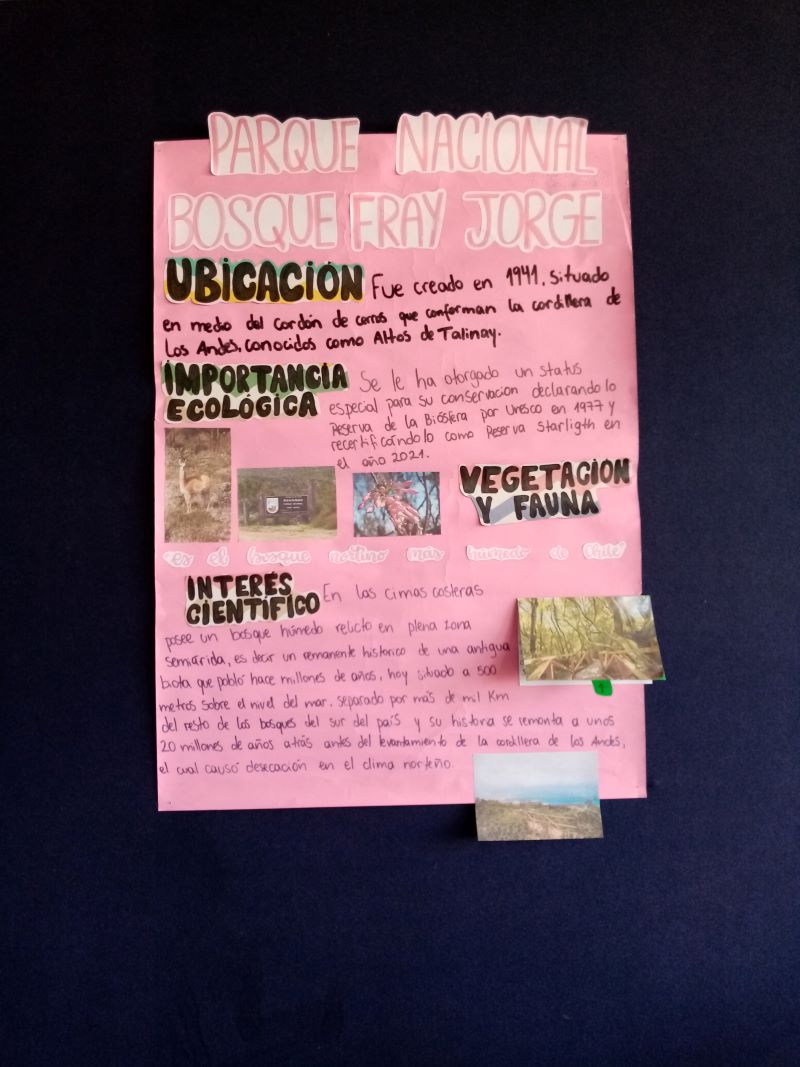 PARQUE NACIONAL
BOSQUE FRAY JORGE
UBICACIÓN Fue creado en 1941. Situado
en medio del cordón de cerros que conforman la cordillera de
los Andes, conocidos como Altos de Talinay.
IMPORTANCIA ECOLÓGICA Se le ha otorgado un status
especial para su conservación declarandolo
Reserva de la Biósfera por Unesco en 1977 y
recertificándolo como Reserva Starligth en
el año 2021.
VEGETACIÓN
Y FAUNA
es el bosque nortino más húmedo de Chile
INTERÉS CIENTÍFICO En las cimas costeras
posee un bosque húmedo relicto en plena zona
semiárida, es decir un remanente historico de una antigua
biota que pobló hace millones de años, hoy situado a 500
metros sobre el nivel del mar. separado por más de mil Km
del resto de los bosques del sur del país y su historia se remonta a unos
20 millones de años atrás antes del levantamiento de la cordillera de los Andes,
el cual causó desecación en el clima norteño.